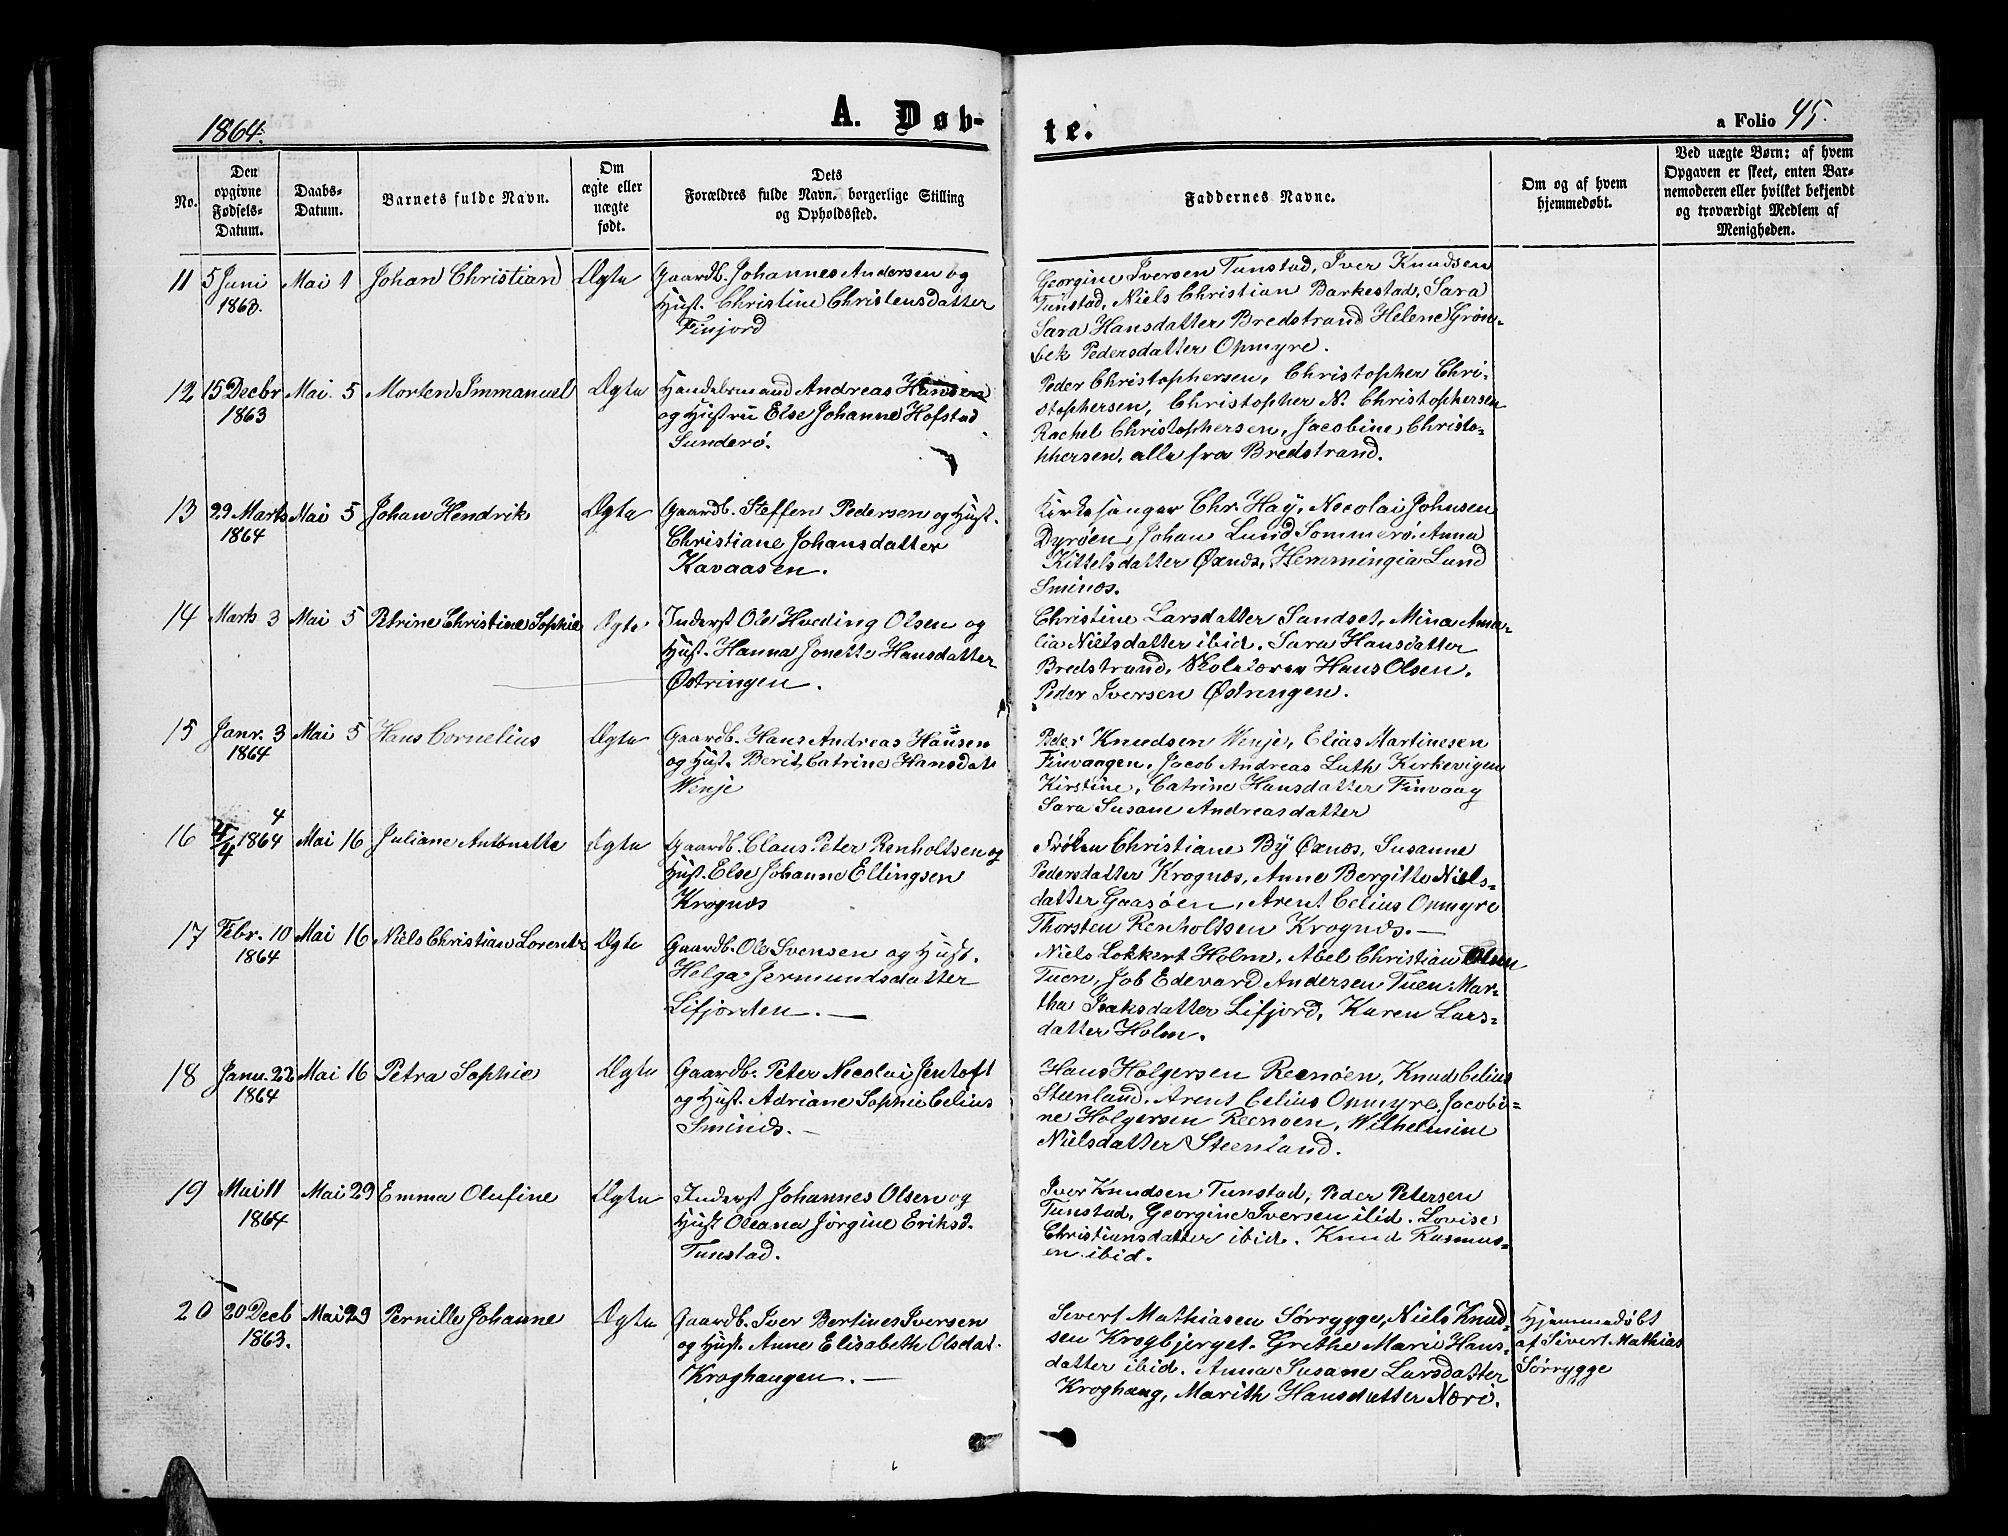 1864.
A. Døb-
te.
a Folio 45.
No.
Den
opgivne
Fødsels-
Datum.
Daabs-
Datum.
Barnets fulde Navn.
Om
ægte eller
uægte
født.
Dets
Forældres fulde Navn, borgerlige Stilling
og Opholdssted.
Faddernes Navne.
Om og af hvem
hjemmedøbt.
Ved uægte Børn: af hvem
Opgaven er skeet, enten Bar-
nemoderen eller hvilket bekjendt
og troværdigt Medlem af
Menigheden.
11 5 Juni Mai 1 Johan Christian Ægte Gaardb. Johannes Andersen og
1863. Hust. Christine Christensdatter
Finjord
Georgine Iversen Tunstad, Iver Knudsen
Tunstad, Niels Christian Barkestad, Sara
Sara Hansdatter Bredstrand Helene Grøn-
bek Pedersdatter Opmyre.
12 15 Decbr Mai 5 Morten Immanuel Ægte Handelsmand Andreas Hansen
1863 og Hustru Else Johanne Hofstad
Sunderø.
Peder Christophersen, Christopher Chri-
stophersen, Christopher N. Christophersen
Rachel Christophersen, Jacobine Christo-
phersen, alle fra Bredstrand.
13 29 Marts Mai 5 Johan Hendrik Ægte Gaardb. Steffen Pedersen og Hust.
1864 Christiane Johansdatter
Kavaasen.
Kirkesanger Chr. Hay, Nicolai Johnsen
Dyrøen, Johan Lund Sommerø, Anna
Kittelsdatter Øxnæs, Hemmingia Lund
Sminæs.
14 Marts 3 Mai 5 Petrine Christine Sophie Ægte Inderst Ole Hveding Olsen og
Hust. Hanna Jonette Hansdatter
Østringen.
Christine Larsdatter Sandset, Mina Ama-
lia Nielsdatter ibid. Sara Hansdatter
Bredstrand, Skolelærer Hans Olsen,
Peder Iversen Østringen.
15 Janr. 3 Mai 5 Hans Cornelius Ægte Gaardb. Hans Andreas Hansen
1864 og Hust. Berit Catrine Hansdat.
Wenje
Peder Knudsen Wenje, Elias Martinesen
Finvaagen, Jacob Andreas Luth Kirkevigen
Kirstine, Catrine Hansdatter Finvaag
Sara Susane Andreasdatter
16 4/4 1864 Mai 16 Juliane Antonette Ægte Gaardb. Claus Peter Renholtsen og
Hust. Else Johanne Ellingsen
Krognæs
Frøken Christiane By Øxnæs, Susanne
Pedersdatter Krognæs, Anne Bergitte Niels-
datter Gaasøen, Arent Celius Opmyre
Thorsten Renholtsen Krognæs.—
17 Febr. 10 Mai 16 Niels Christian Lorentz Ægte Gaardb. Ole Svensen og Hust.
1864 Helga Jermundsdatter
Lifjorden.—
Niels Lokkert Holm, Abel Christian Olsen
Tuen, Job Edevard Andersen Tuen, Mar-
tha Isaksdatter Lifjord, Karen Lars-
datter Holm.
18 Janu. 22 Mai 16 Petra Sophie Ægte Gaardb. Peter Nicolai Jentoft
1864 og Hust. Adriane Sophie Celius
Sminæs.—
Hans Holgersen Reenøen, Knud Celius
Steenland, Arent Celius Opmyre, Jacobi-
ne Holgersen Reenøen, Wilhelmine
Nielsdatter Steenland.
19 Mai 11 Mai 29 Emma Olufine Ægte Inderst Johannes Olsen og
1864 Hust Oleana Jørgine Eriksd.
Tunstad.
Iver Knudsen Tunstad, Peder Petersen
Tunstad, Georgine Iversen ibid. Lovise
Christiansdatter ibid. Knud Rasmus-
en ibid.
20 20 Decb Mai 29 Pernille Johanne Ægte Gaardb. Iver Bertines Iversen
1863. og Hust. Anne Elisabeth Olsdat.
Kroghaugen.—
Sivert Mathiasen Sørrygge, Niels Knud-
sen Krogbjerget. Grethe Marie Hans-
datter ibid. Anna Susane Larsdatter
Kroghaug, Marith Hansdatter Nærø.
Hjemmedøbt
af Sivert Mathias
Sørrygge